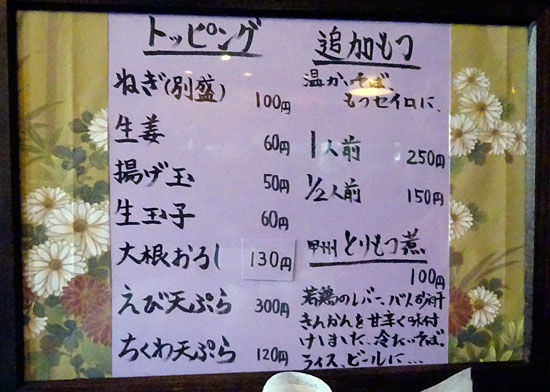 トッピング
ねぎ(別盛) 100円
生姜 60円
揚げ玉 50円
生玉子 60円
大根おろし 130円
えび天ぷら 300円
ちくわ天ぷら 120円
追加もつ
温かいそば
もつセイロに、
1人前 250円
1/2人前 150円
甲州とりもつ煮
100円
若鶏のレバー、ハツ、
きんかんを甘辛く味付
けしました、冷たいそば。
ライス、ビールに…